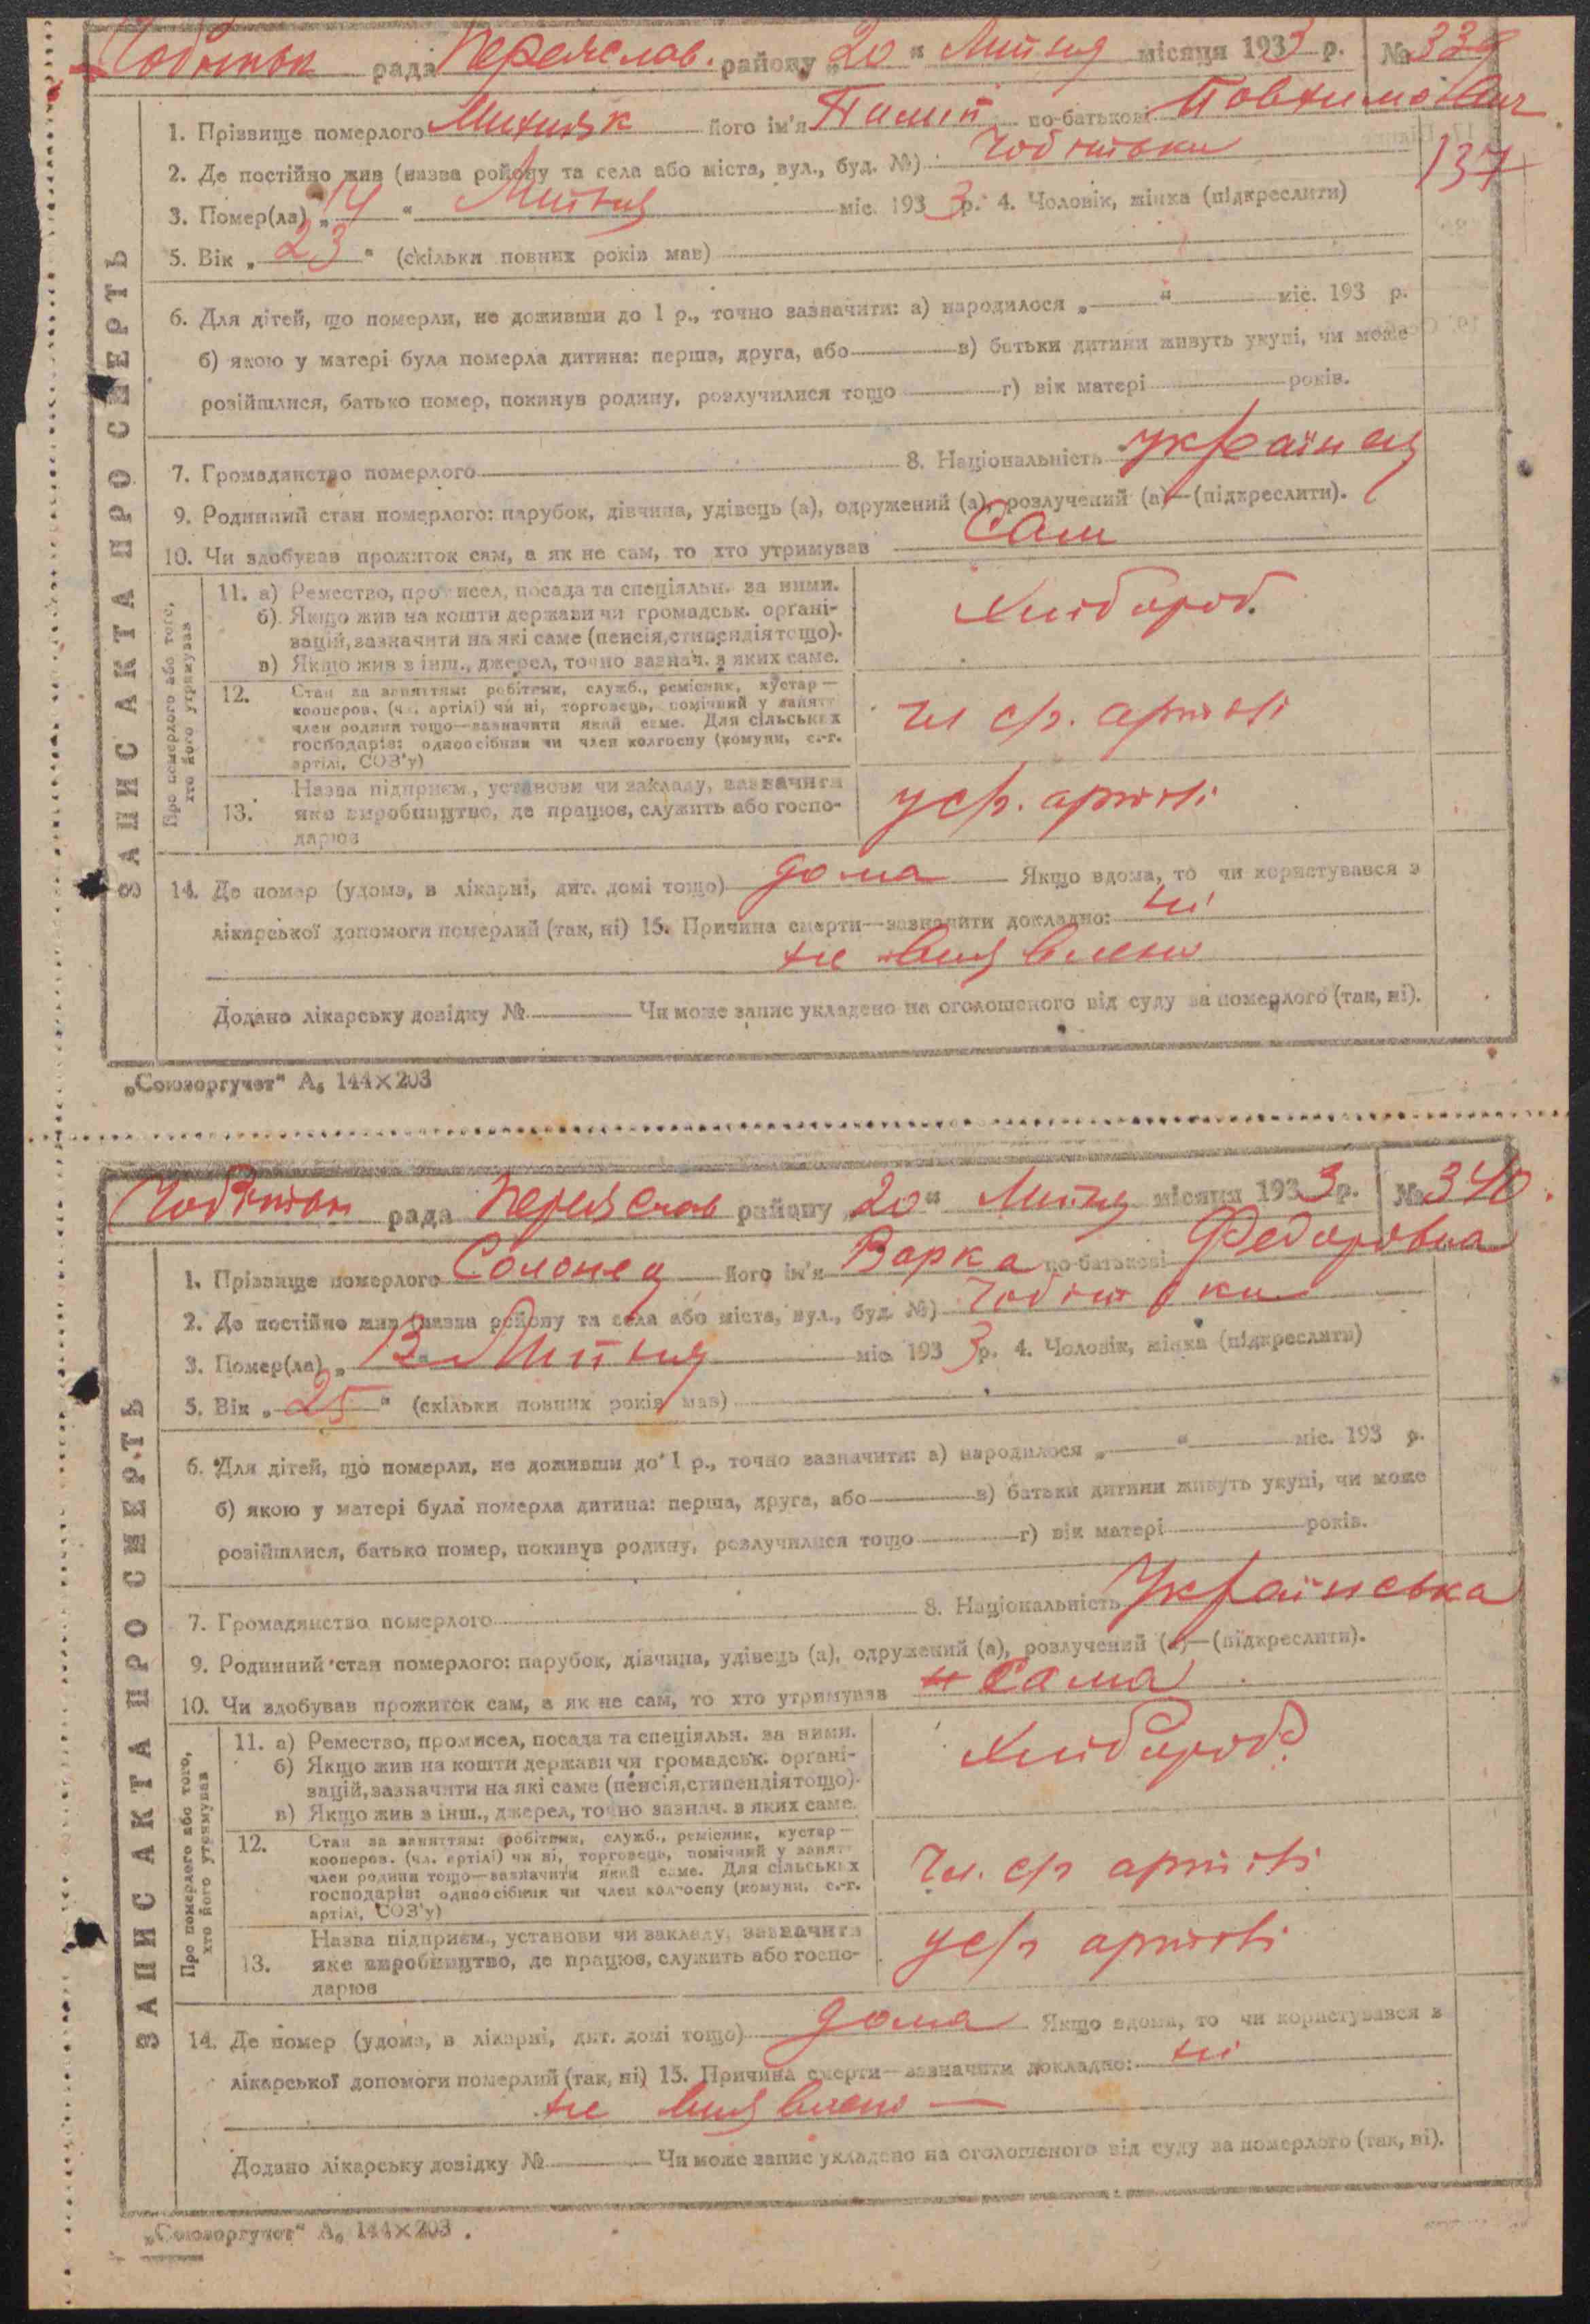 рада Переяслав. району „20“ Липня місяця 1933 р. № 339
1. Прізвище померлого його ім'я по-батькові
137
2. Де постійно жив (назва району та села або міста, вул., буд. №)
3. Помер(ла) „14“ Липня міс. 1933 р. 4. Чоловік, жінка (підкреслити)
5. Вік „23“ (скільки повних років мав)
6. Для дітей, що померли, не доживши до 1 р., точно зазначити: а) народилося „ “ міс. 193 р.
б) якою у матері була померла дитина: перша, друга, або в) батьки дитини живуть укупі, чи може
розійшлися, батько помер, покинув родину, розлучилися тощо г) вік матері років.
7. Громадянство померлого 8. Національність українец
9. Родинний стан померлого: парубок, дівчина, удівець (а), одружений (а), розлучений (а)—(підкреслити).
10. Чи здобував прожиток сам, а як не сам, то хто утримував Сам
ЗАПИС АКТА ПРО СМЕРТЬ
Про померлого або того,
хто його утримував
11. а) Ремество, промисел, посада та спеціяльн. за ними.
б) Якщо жив на кошти держави чи громадськ. органі-
зацій, зазначити на які саме (пенсія, стипендія тощо).
в) Якщо жив з інш., джерел, точно зазнач. з яких саме.
Хлібороб.
12. Стан за заняттям: робітник, служб., ремісник, кустар—
кооперов. (чл. артілі) чи ні, торговець, помічний у занятт
член родини тощо—зазначити який саме. Для сільських
господарів: одноосібник чи член колгоспу (комуни, с.-г.
артілі, СОЗ'у)
чл с/г. артілі
13. Назва підприєм., установи чи закладу, зазначити
яке виробництво, де працює, служить або госпо-
дарює
у с/г. артілі
14. Де помер (удома, в лікарні, дит. домі тощо) дома Якщо вдома, то чи користувався з
лікарської допомоги померлий (так, ні) 15. Причина смерти—зазначити докладно: ні
не виявлено
Додано лікарську довідку № Чи може запис укладено на оголошеного від суду за померлого (так, ні).
„Союзоргучет“ А₅ 144×203
рада Переяслав району „20“ Липня місяця 1933 р. № 340.
1. Прізвище померлого Солонец його ім'я Варка по-батькові Федоровна
2. Де постійно жив (назва району та села або міста, вул., буд. №)
3. Помер(ла) „13“ Липня міс. 1933 р. 4. Чоловік, жінка (підкреслити)
5. Вік „25“ (скільки повних років мав)
6. Для дітей, що померли, не доживши до 1 р., точно зазначити: а) народилося „ “ міс. 193 р.
б) якою у матері була померла дитина: перша, друга, або в) батьки дитини живуть укупі, чи може
розійшлися, батько помер, покинув родину, розлучилися тощо г) вік матері років.
7. Громадянство померлого 8. Національність Українська
9. Родинний стан померлого: парубок, дівчина, удівець (а), одружений (а), розлучений (а)—(підкреслити).
10. Чи здобував прожиток сам, а як не сам, то хто утримував Сама
ЗАПИС АКТА ПРО СМЕРТЬ
Про померлого або того,
хто його утримував
11. а) Ремество, промисел, посада та спеціяльн. за ними.
б) Якщо жив на кошти держави чи громадськ. органі-
зацій, зазначити на які саме (пенсія, стипендія тощо).
в) Якщо жив з інш., джерел, точно зазнач. з яких саме.
Хлібороб
12. Стан за заняттям: робітник, служб., ремісник, кустар—
кооперов. (чл. артілі) чи ні, торговець, помічний у занятт
член родини тощо—зазначити який саме. Для сільських
господарів: одноосібник чи член колгоспу (комуни, с.-г.
артілі, СОЗ'у)
Чл. с/г артілі
13. Назва підприєм., установи чи закладу, зазначити
яке виробництво, де працює, служить або госпо-
дарює
у с/г артілі
14. Де помер (удома, в лікарні, дит. домі тощо) дома Якщо вдома, то чи користувався з
лікарської допомоги померлий (так, ні) 15. Причина смерти—зазначити докладно: ні
не виявлено —
Додано лікарську довідку № Чи може запис укладено на оголошеного від суду за померлого (так, ні).
„Союзоргучет“ А₅ 144×203.